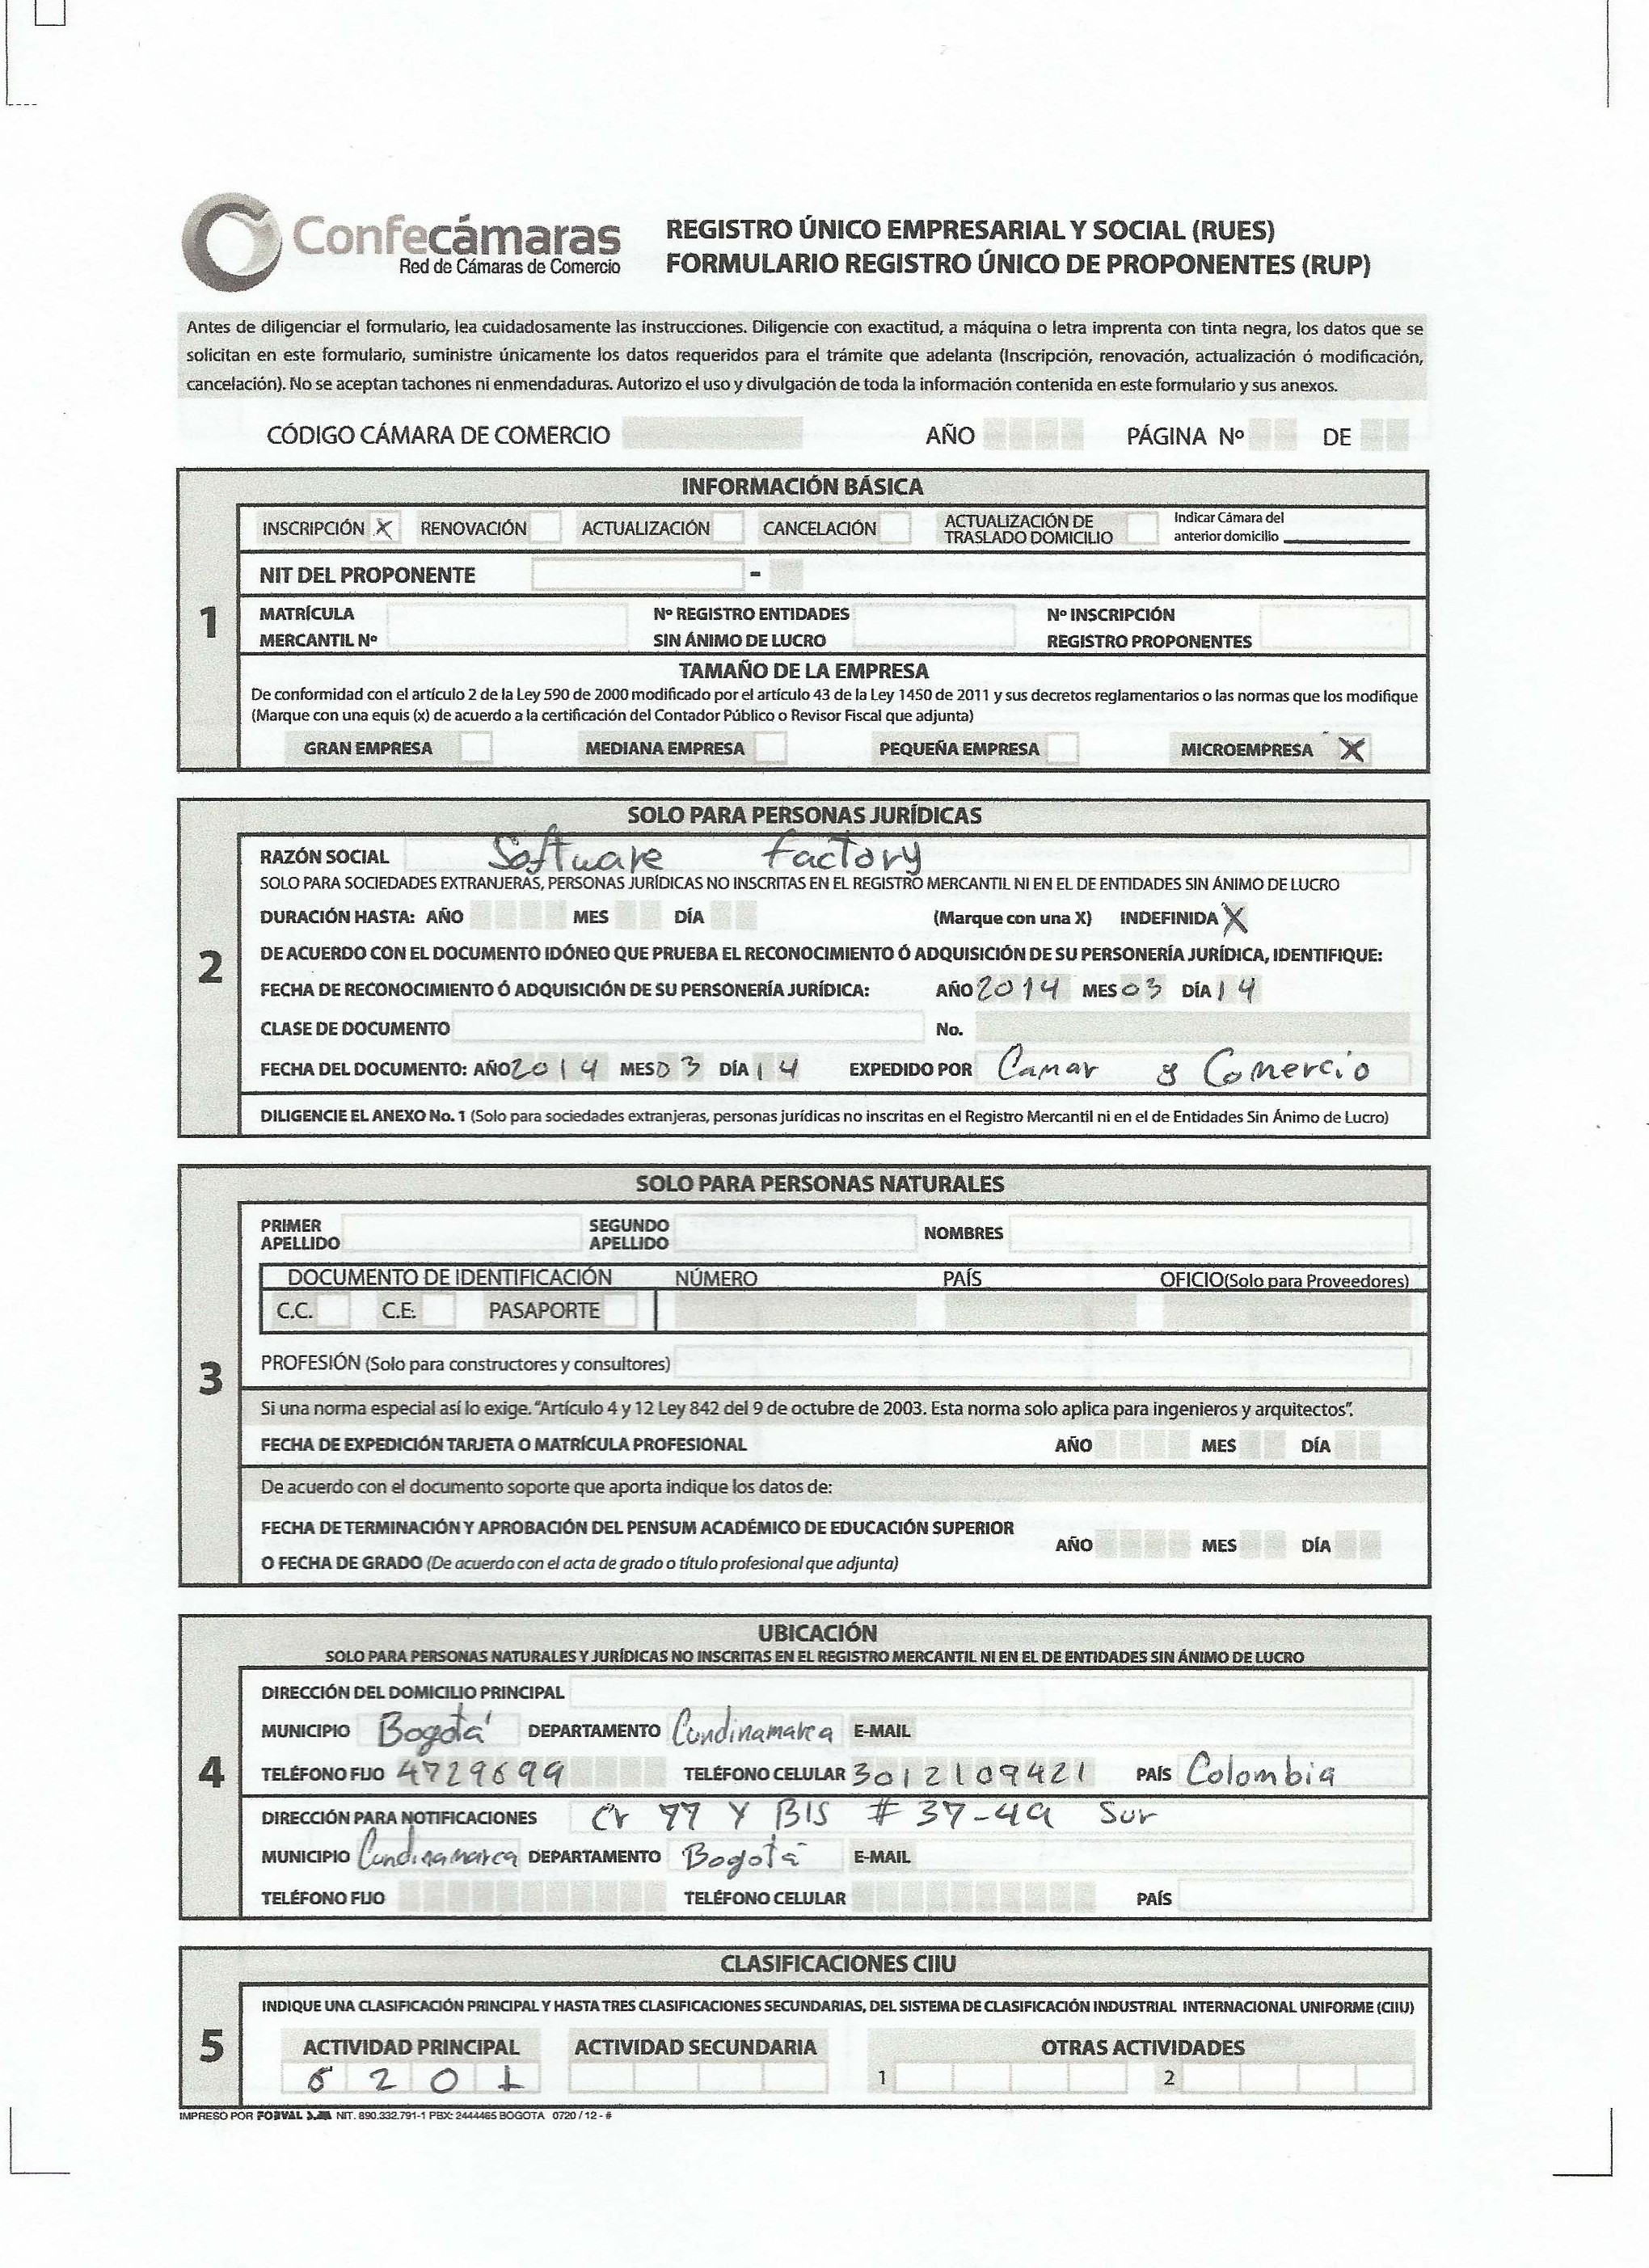 Confecámaras
Red de Cámaras de Comercio
REGISTRO ÚNICO EMPRESARIAL Y SOCIAL (RUES)
FORMULARIO REGISTRO ÚNICO DE PROPONENTES (RUP)
Antes de diligenciar el formulario, lea cuidadosamente las instrucciones. Diligencie con exactitud, a máquina o letra imprenta con tinta negra, los datos que se
solicitan en este formulario, suministre únicamente los datos requeridos para el trámite que adelanta (Inscripción, renovación, actualización ó modificación,
cancelación). No se aceptan tachones ni enmendaduras. Autorizo el uso y divulgación de toda la información contenida en este formulario y sus anexos.
CÓDIGO CÁMARA DE COMERCIO AÑO PÁGINA Nº DE
1
INFORMACIÓN BÁSICA
INSCRIPCIÓN X RENOVACIÓN ACTUALIZACIÓN CANCELACIÓN ACTUALIZACIÓN DE TRASLADO DOMICILIO Indicar Cámara del anterior domicilio
NIT DEL PROPONENTE -
MATRÍCULA MERCANTIL Nº Nº REGISTRO ENTIDADES SIN ÁNIMO DE LUCRO Nº INSCRIPCIÓN REGISTRO PROPONENTES
TAMAÑO DE LA EMPRESA
De conformidad con el artículo 2 de la Ley 590 de 2000 modificado por el artículo 43 de la Ley 1450 de 2011 y sus decretos reglamentarios o las normas que los modifique
(Marque con una equis (x) de acuerdo a la certificación del Contador Público o Revisor Fiscal que adjunta)
GRAN EMPRESA MEDIANA EMPRESA PEQUEÑA EMPRESA MICROEMPRESA X
2
SOLO PARA PERSONAS JURÍDICAS
RAZÓN SOCIAL Software factory
SOLO PARA SOCIEDADES EXTRANJERAS, PERSONAS JURÍDICAS NO INSCRITAS EN EL REGISTRO MERCANTIL NI EN EL DE ENTIDADES SIN ÁNIMO DE LUCRO
DURACIÓN HASTA: AÑO MES DÍA (Marque con una X) INDEFINIDA X
DE ACUERDO CON EL DOCUMENTO IDÓNEO QUE PRUEBA EL RECONOCIMIENTO Ó ADQUISICIÓN DE SU PERSONERÍA JURÍDICA, IDENTIFIQUE:
FECHA DE RECONOCIMIENTO Ó ADQUISICIÓN DE SU PERSONERÍA JURÍDICA: AÑO 2014 MES 03 DÍA 14
CLASE DE DOCUMENTO No.
FECHA DEL DOCUMENTO: AÑO 2014 MES 03 DÍA 14 EXPEDIDO POR Camar y Comercio
DILIGENCIE EL ANEXO No. 1 (Solo para sociedades extranjeras, personas jurídicas no inscritas en el Registro Mercantil ni en el de Entidades Sin Ánimo de Lucro)
3
SOLO PARA PERSONAS NATURALES
PRIMER APELLIDO SEGUNDO APELLIDO NOMBRES
DOCUMENTO DE IDENTIFICACIÓN NÚMERO PAÍS OFICIO(Solo para Proveedores)
C.C. C.E. PASAPORTE
PROFESIÓN (Solo para constructores y consultores)
Si una norma especial así lo exige. "Artículo 4 y 12 Ley 842 del 9 de octubre de 2003. Esta norma solo aplica para ingenieros y arquitectos".
FECHA DE EXPEDICIÓN TARJETA O MATRÍCULA PROFESIONAL AÑO MES DÍA
De acuerdo con el documento soporte que aporta indique los datos de:
FECHA DE TERMINACIÓN Y APROBACIÓN DEL PENSUM ACADÉMICO DE EDUCACIÓN SUPERIOR
O FECHA DE GRADO (De acuerdo con el acta de grado o título profesional que adjunta) AÑO MES DÍA
4
UBICACIÓN
SOLO PARA PERSONAS NATURALES Y JURÍDICAS NO INSCRITAS EN EL REGISTRO MERCANTIL NI EN EL DE ENTIDADES SIN ÁNIMO DE LUCRO
DIRECCIÓN DEL DOMICILIO PRINCIPAL
MUNICIPIO Bogotá DEPARTAMENTO Cundinamarca E-MAIL
TELÉFONO FIJO 4729699 TELÉFONO CELULAR 3012109421 PAÍS Colombia
DIRECCIÓN PARA NOTIFICACIONES Cr 77 Y BIS # 37-49 Sur
MUNICIPIO Cundinamarca DEPARTAMENTO Bogotá E-MAIL
TELÉFONO FIJO TELÉFONO CELULAR PAÍS
5
CLASIFICACIONES CIIU
INDIQUE UNA CLASIFICACIÓN PRINCIPAL Y HASTA TRES CLASIFICACIONES SECUNDARIAS, DEL SISTEMA DE CLASIFICACIÓN INDUSTRIAL INTERNACIONAL UNIFORME (CIIU)
ACTIVIDAD PRINCIPAL ACTIVIDAD SECUNDARIA OTRAS ACTIVIDADES
6201 1 2
IMPRESO POR FORVAL S.A. NIT. 890.332.791-1 PBX: 2444465 BOGOTA 0720 / 12 - #